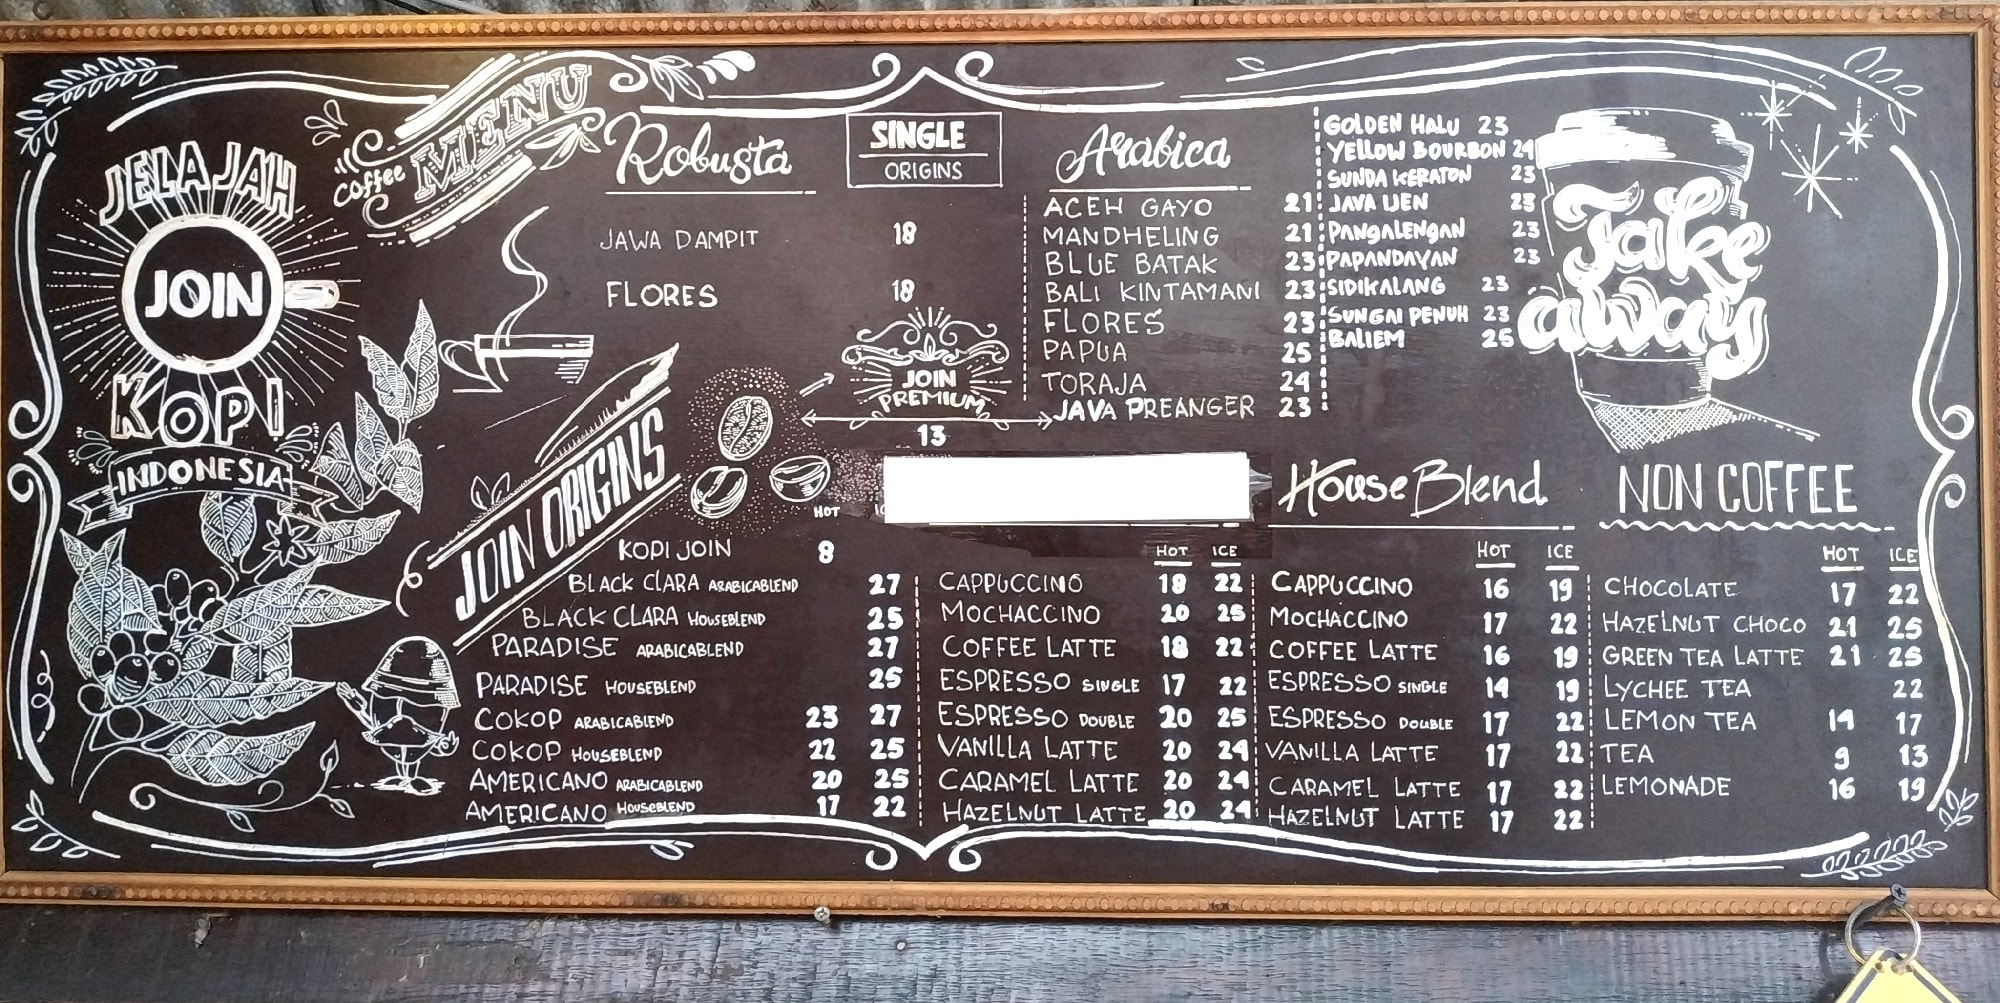 JELAJAH
JOIN
KOPI
INDONESIA
coffee MENU
Robusta
JAWA DAMPIT 18
FLORES 18
SINGLE
ORIGINS
JOIN
PREMIUM
13
Arabica
ACEH GAYO 21
MANDHELING 21
BLUE BATAK 23
BALI KINTAMANI 23
FLORES 23
PAPUA 25
TORAJA 24
JAVA PREANGER 23
GOLDEN HALU 23
YELLOW BOURBON 24
SUNDA KERATON 23
JAVA IJEN 23
PANGALENGAN 23
PAPANDAYAN 23
SIDIKALANG 23
SUNGAI PENUH 23
BALIEM 25
Take
away
JOIN ORIGINS
HOT
KOPI JOIN 8
BLACK CLARA ARABICABLEND 27
BLACK CLARA HOUSEBLEND 25
PARADISE ARABICABLEND 27
PARADISE HOUSEBLEND 25
COKOP ARABICABLEND 23 27
COKOP HOUSEBLEND 22 25
AMERICANO ARABICABLEND 20 25
AMERICANO HOUSEBLEND 17 22
HOT ICE
CAPPUCCINO 18 22
MOCHACCINO 20 25
COFFEE LATTE 18 22
ESPRESSO SINGLE 17 22
ESPRESSO DOUBLE 20 25
VANILLA LATTE 20 24
CARAMEL LATTE 20 24
HAZELNUT LATTE 20 24
House Blend
HOT ICE
CAPPUCCINO 16 19
MOCHACCINO 17 22
COFFEE LATTE 16 19
ESPRESSO SINGLE 14 19
ESPRESSO DOUBLE 17 22
VANILLA LATTE 17 22
CARAMEL LATTE 17 22
HAZELNUT LATTE 17 22
NON COFFEE
HOT ICE
CHOCOLATE 17 22
HAZELNUT CHOCO 21 25
GREEN TEA LATTE 21 25
LYCHEE TEA 22
LEMON TEA 14 17
TEA 9 13
LEMONADE 16 19